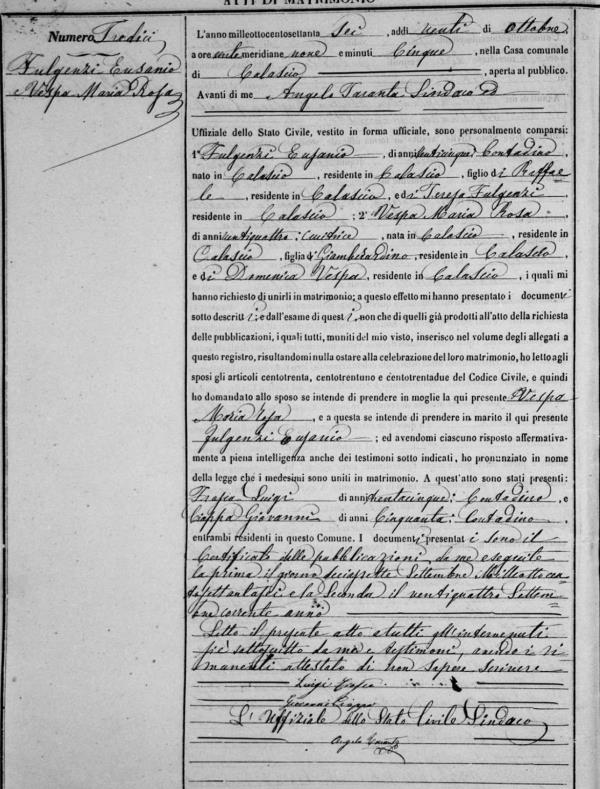 ATTI DI MATRIMONIO
Numero Tredici
Fulgenzi Eusanio
e Vespa Maria Rosa
L'anno milleottocentosettanta sei, addì venti di Ottobre
a ore meridiane nove e minuti Cinque, nella Casa comunale
di Calascio, aperta al pubblico.
Avanti di me Angelo Taranta Sindaco ed
Uffiziale dello Stato Civile, vestito in forma uffiziale, sono personalmente comparsi:
1° Fulgenzi Eusanio, di anni venticinque, Contadino,
nato in Calascio, residente in Calascio, figlio di Raffae
le, residente in Calascio, e di Teresa Fulgenzi
residente in Calascio; 2° Vespa Maria Rosa,
di anni ventiquattro; cucitrice, nata in Calascio, residente in
Calascio, figlia di Giamberardino, residente in Calascio,
e di Domenica Vespa, residente in Calascio, i quali mi
hanno richiesto di unirli in matrimonio; a questo effetto mi hanno presentato i documenti
sotto descritti; e dall'esame di questi, non che di quelli già prodotti all'atto della richiesta
delle pubblicazioni, i quali tutti, muniti del mio visto, inserisco nel volume degli allegati a
questo registro, risultandomi nulla ostare alla celebrazione del loro matrimonio, ho letto agli
sposi gli articoli centotrenta, centotrentuno e centotrentadue del Codice Civile, e quindi
ho domandato allo sposo se intende di prendere in moglie la qui presente Vespa
Maria Rosa, e a questa se intende di prendere in marito il qui presente
Fulgenzi Eusanio; ed avendomi ciascuno risposto affermativa-
mente a piena intelligenza anche dei testimoni sotto indicati, ho pronunziato in nome
della legge che i medesimi sono uniti in matrimonio. A quest'atto sono stati presenti:
Frasca Luigi di anni trentacinque: Contadino, e
Ciappa Giovanni di anni Cinquanta: Contadino,
entrambi residenti in questo Comune. I documenti presentati sono il
Certificato delle pubblicazioni da me eseguite
la prima il giorno diciassette Settembre Milleottocen
tosettantasei e la Seconda il ventiquattro Settem
bre corrente anno
Letto il presente atto a tutti gl'intervenuti
si è sottoscritto da me e testimoni, avendo i ri
manenti attestato di non sapere scrivere
Luigi Frasca
Giovanni Ciappa
L'Uffiziale dello Stato Civile Sindaco
Angelo Taranta